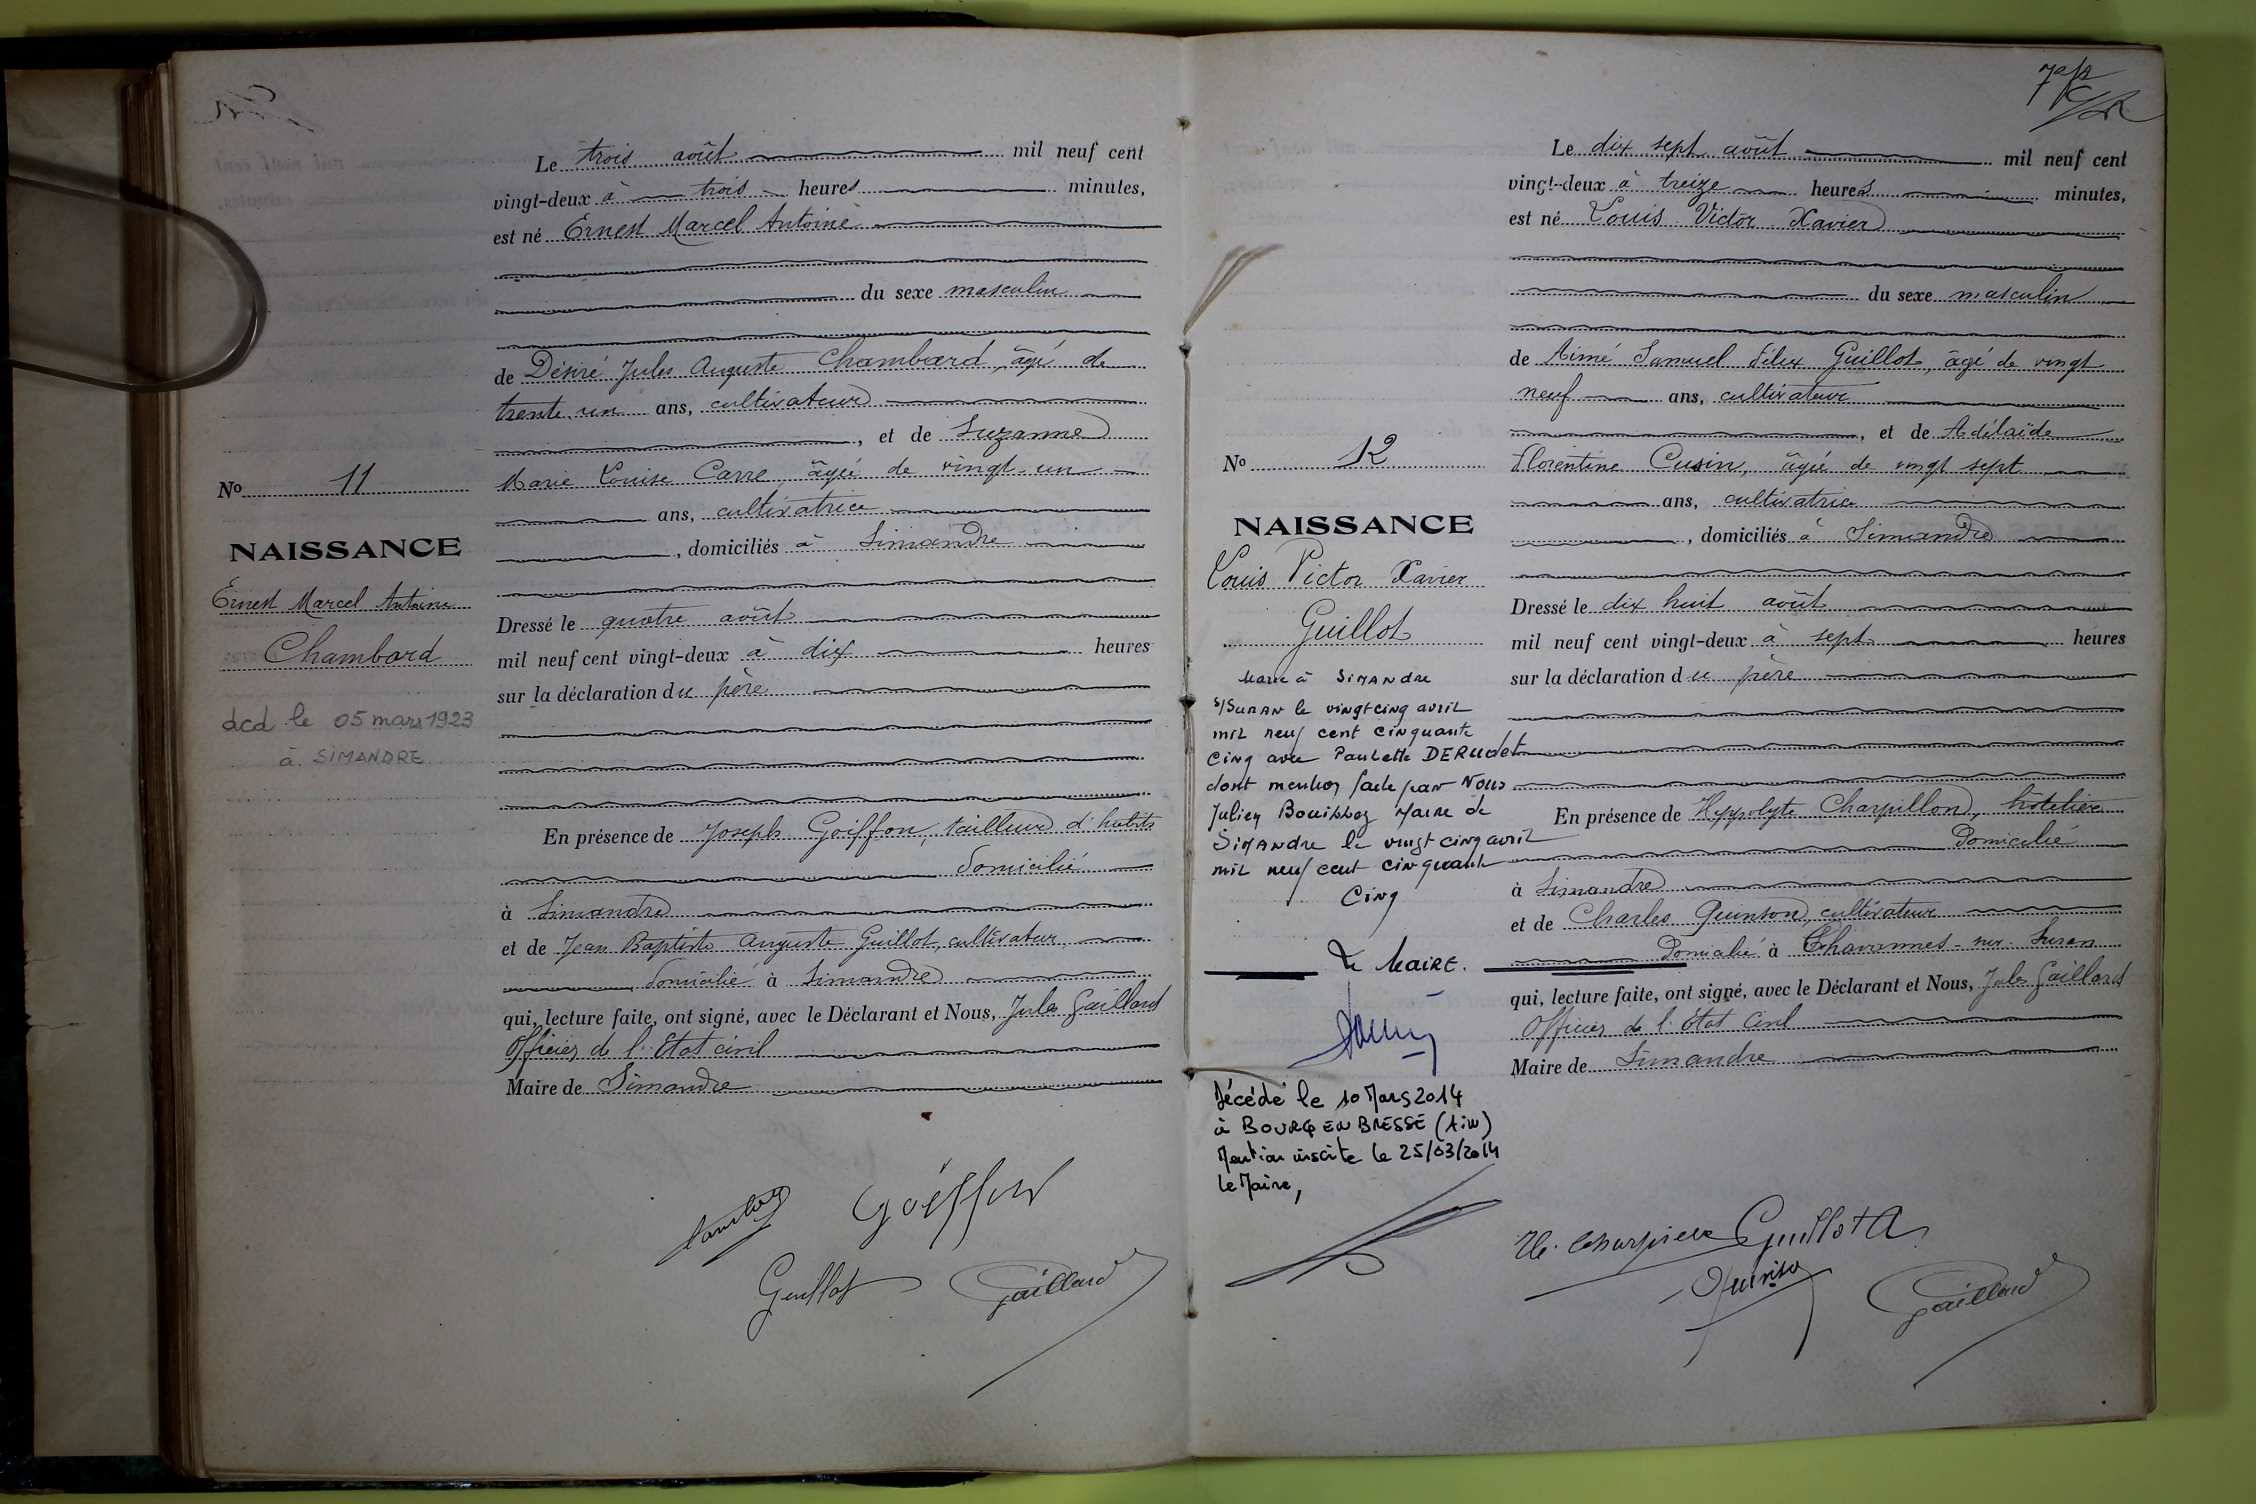 Le trois août mil neuf cent
vingt-deux à trois heures minutes,
est né Ernest Marcel Antoine
du sexe masculin
de Désiré Jules Auguste Chambard, âgé de
trente un ans, cultivateur
, et de Suzanne
Marie Louise Carre, âgée de vingt-un
ans, cultivatrice
, domiciliés à Simandre
Dressé le quatre août
mil neuf cent vingt-deux à dix heures
sur la déclaration du père
En présence de Joseph Goiffon, tailleur d'habits
domicilié
à Simandre
et de Jean Baptiste Auguste Guillot, cultivateur
domicilié à Simandre
qui, lecture faite, ont signé, avec le Déclarant et Nous, Jules Gaillard
Officier de l'Etat civil
Maire de Simandre
No 11
NAISSANCE
Ernest Marcel Antoine
Chambard
dcd le 05 mars 1923
à SIMANDRE
Goiffon
Guillot Gaillard
Le dix sept août mil neuf cent
vingt-deux à treize heures minutes,
est né Louis Victor Xavier
du sexe masculin
de Aimé Samuel Félix Guillot, âgé de vingt
neuf ans, cultivateur
, et de Adélaïde
Florentine Cusin, âgée de vingt sept
ans, cultivatrice
, domiciliés à Simandre
Dressé le dix huit août
mil neuf cent vingt-deux à sept heures
sur la déclaration du père
En présence de Hyppolyte Charpillon, hôtelier
Domicilié
à Simandre
et de Charles Quinson, cultivateur
Domicilié à Chavannes-sur-Suran
qui, lecture faite, ont signé, avec le Déclarant et Nous, Jules Gaillard
Officier de l'Etat Civil
Maire de Simandre
No 12
NAISSANCE
Louis Victor Xavier
Guillot
Marié à SIMANDRE
s/SURAN le vingt cinq avril
mil neuf cent cinquante
cinq avec Paulette DERUDET
dont mention faite par Nous
Julien Maire de
SIMANDRE le vingt cinq avril
mil neuf cent cinquante
Cinq
Le MAIRE.
Décédé le 10 Mars 2014
à BOURG EN BRESSE (Ain)
Mention inscrite le 25/03/2014
Le Maire,
Guillot A
Gaillard